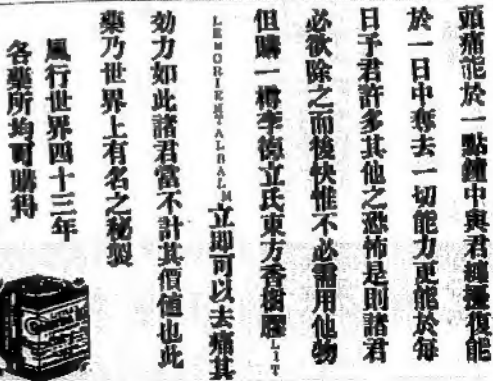 頭痛能於一點鐘中與君纏擾復能
於一日中奪去一切能力更能於每
日予君許多其他之恐怖是則諸君
必欲除之而後快惟不必需用他物
但購一樽李德立氏東方香樹膠LIT
LEMORIENTALBALM立即可以去痛其
効力如此諸君當不計其價值也此
藥乃世界上有名之秘製
風行世界四十三年
各藥所均可購得